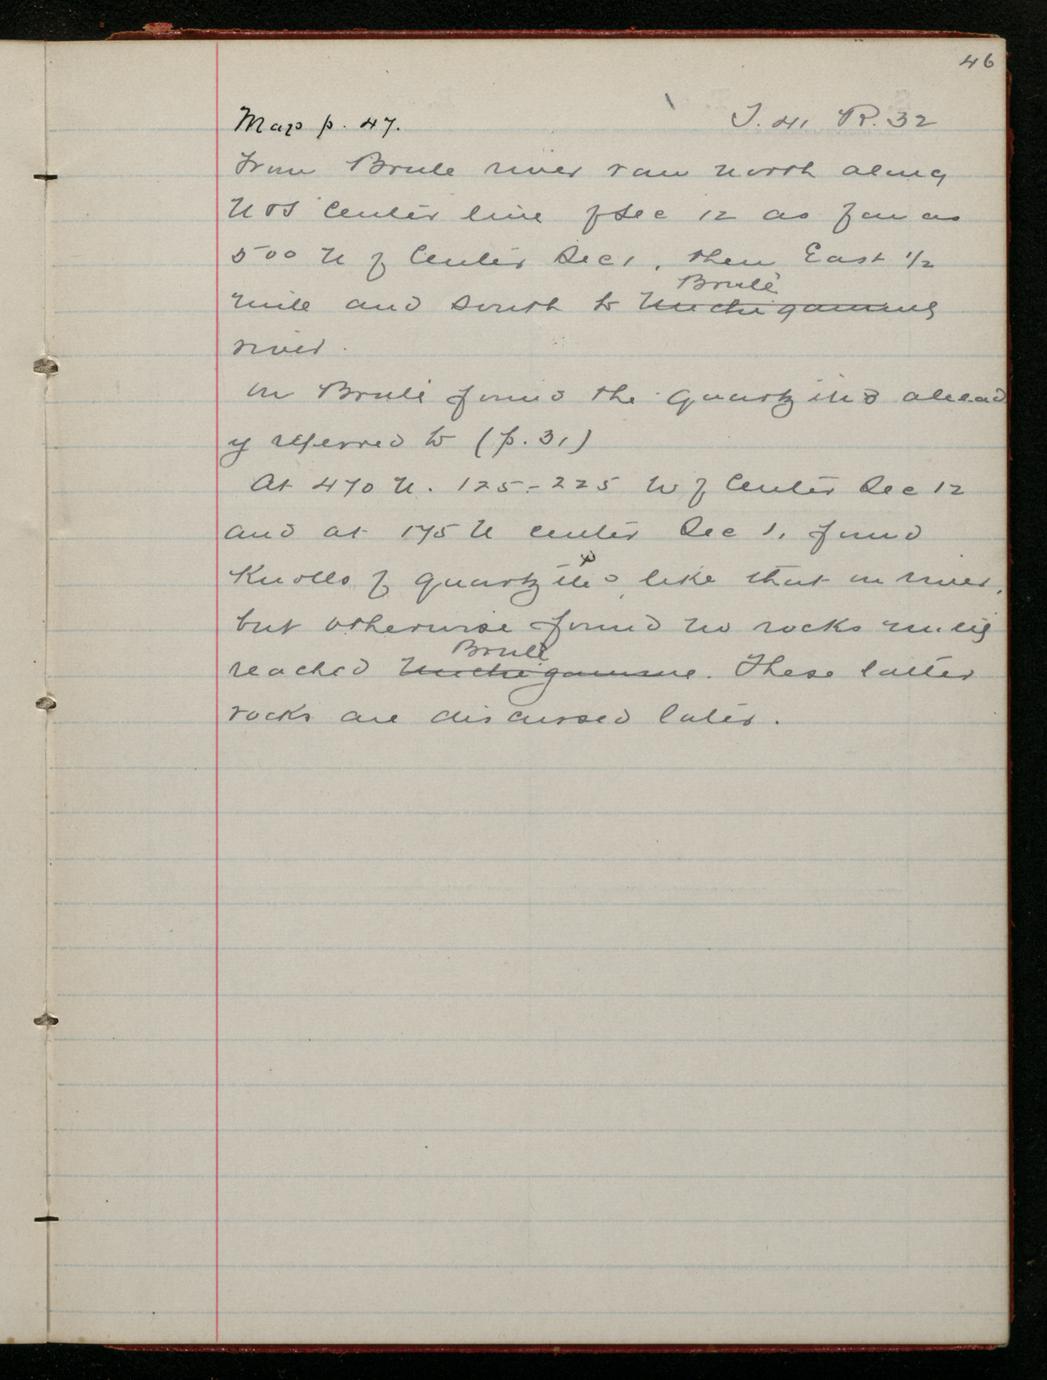 46
Map p. 47. T. 41 R. 32
From Brule river ran north along
N & S center line of Sec 12 as far as
500 N of Center Sec 1, then East 1/2
mile and south to Brulé Michigamme
river.
On Brulé found the quartzites alread
y referred to (p. 31)
At 470 N. 125-225 W of Center Sec 12
and at 175 N center Sec 1, found
Knolls of quartzite, like that on river,
but otherwise found no rocks until
reached Brulé Michigamme. These latter
rocks are discussed later.